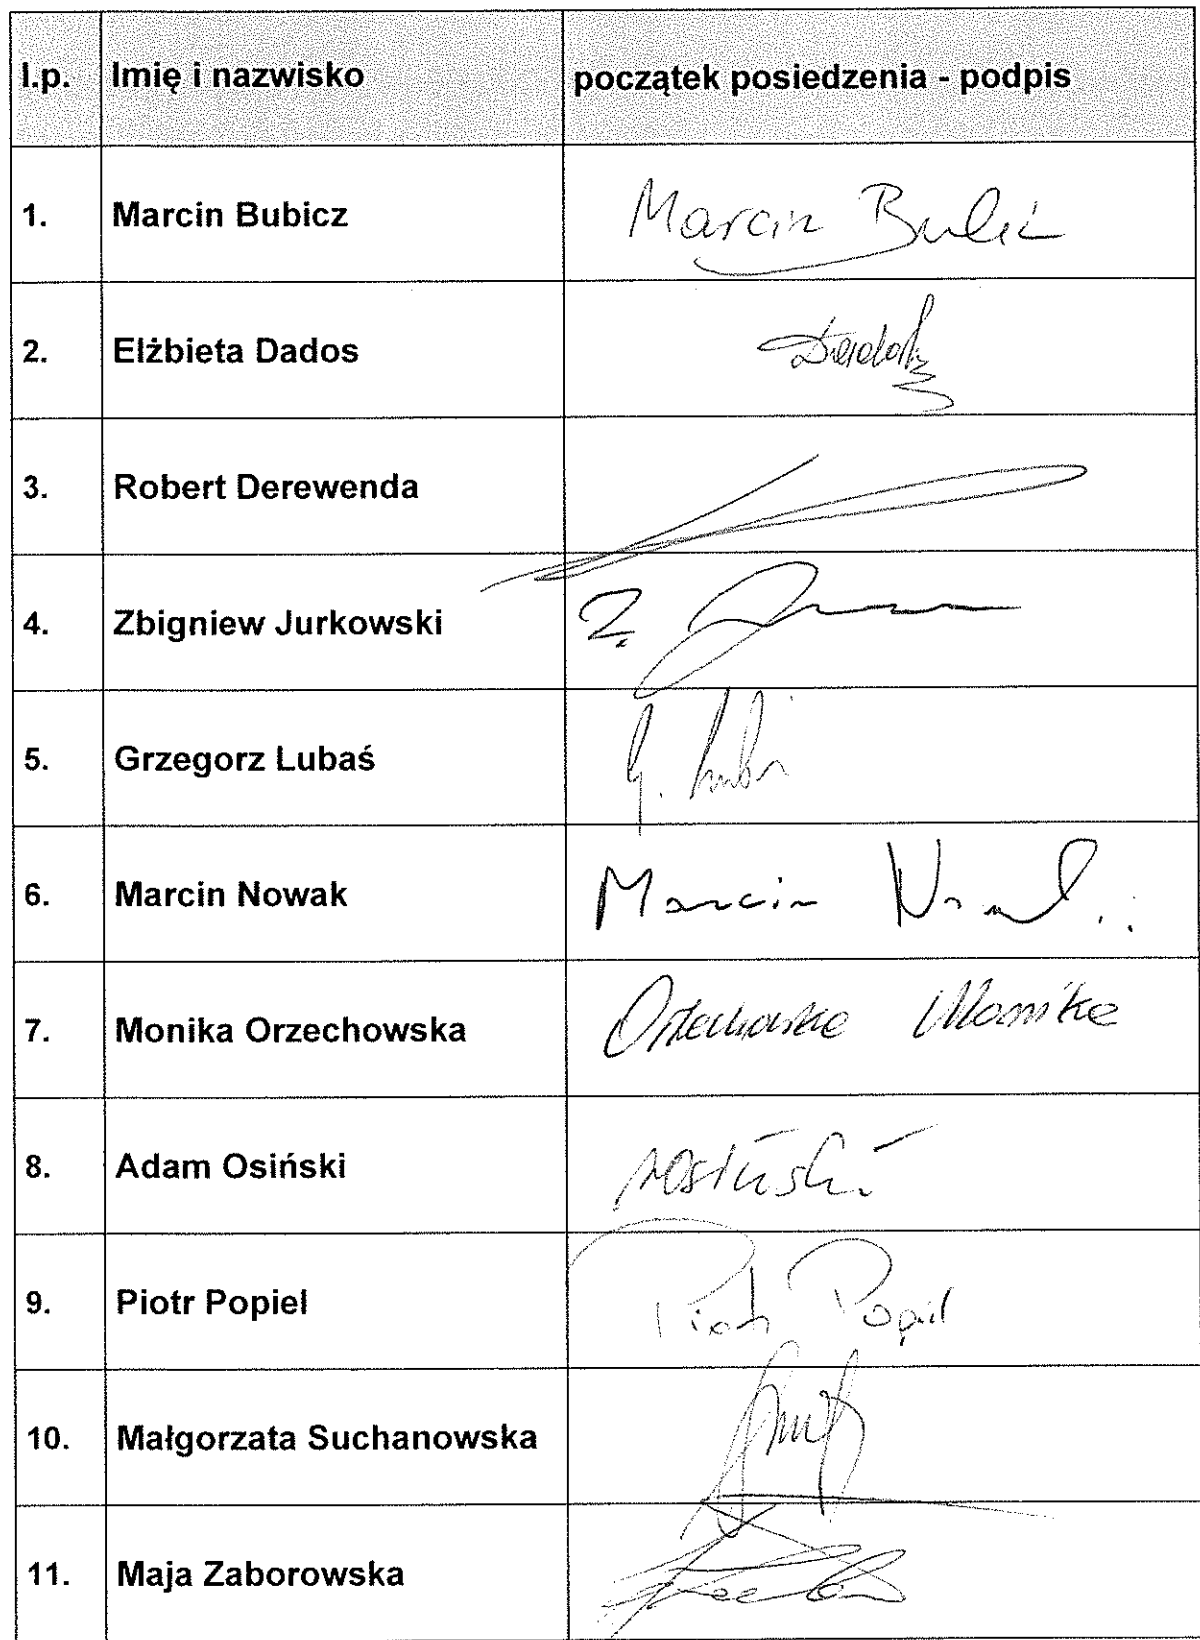 l.p. Imię i nazwisko początek posiedzenia - podpis
1. Marcin Bubicz Marcin
2. Elżbieta Dados
3. Robert Derewenda
4. Zbigniew Jurkowski Z.
5. Grzegorz Lubaś G.
6. Marcin Nowak Marcin Nowak
7. Monika Orzechowska Orzechowska Monika
8. Adam Osiński AOsiński
9. Piotr Popiel Piotr Popiel
10. Małgorzata Suchanowska
11. Maja Zaborowska